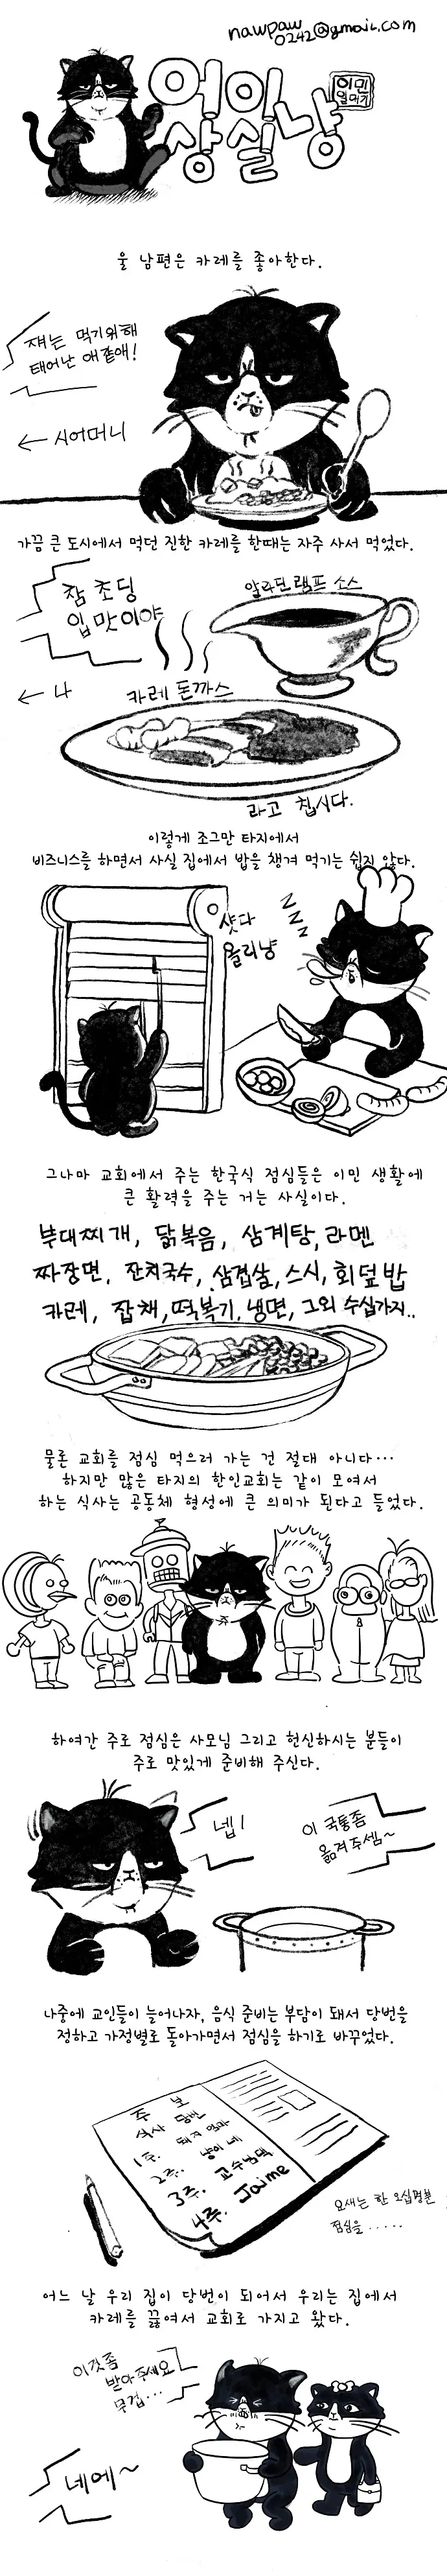 nawpaw
0242@gmail.com
어이
상실냥
이민
일기
울 남편은 카레를 좋아한다.
쟤는 먹기위해
태어난 애같애!
← 시어머니
가끔 큰 도시에서 먹던 진한 카레를 한때는 자주 사서 먹었다.
참 초딩
입맛이야
← 나
알라딘램프 소스
카레 돈까스
라고 칩시다.
이렇게 조그만 타지에서
비즈니스를 하면서 사실 집에서 밥을 챙겨 먹기는 쉽지 않다.
샷다
올리냥
ZZZ
그나마 교회에서 주는 한국식 점심들은 이민 생활에
큰 활력을 주는 거는 사실이다.
부대찌개, 닭볶음, 삼계탕, 라멘
짜장면, 잔치국수, 삼겹살, 스시, 회덮밥
카레, 잡채, 떡볶기, 냉면, 그외 수십가지..
물론 교회를 점심 먹으러 가는 건 절대 아니다...
하지만 많은 타지의 한인교회는 같이 모여서
하는 식사는 공동체 형성에 큰 의미가 된다고 들었다.
하여간 주로 점심은 사모님 그리고 헌신하시는 분들이
주로 맛있게 준비해 주신다.
넵!
이 국통좀
옮겨주셈~
나중에 교인들이 늘어나자, 음식 준비는 부담이 돼서 당번을
정하고 가정별로 돌아가면서 점심을 하기로 바꾸었다.
주 보
식사 당번
1주.
2주. 냥이네
3주. 교수님댁
4주. Jaime
요새는 한 오십명분
점심을 .....
어느 날 우리 집이 당번이 되어서 우리는 집에서
카레를 끓여서 교회로 가지고 왔다.
이것좀
받아주세요
무겁...
네에~